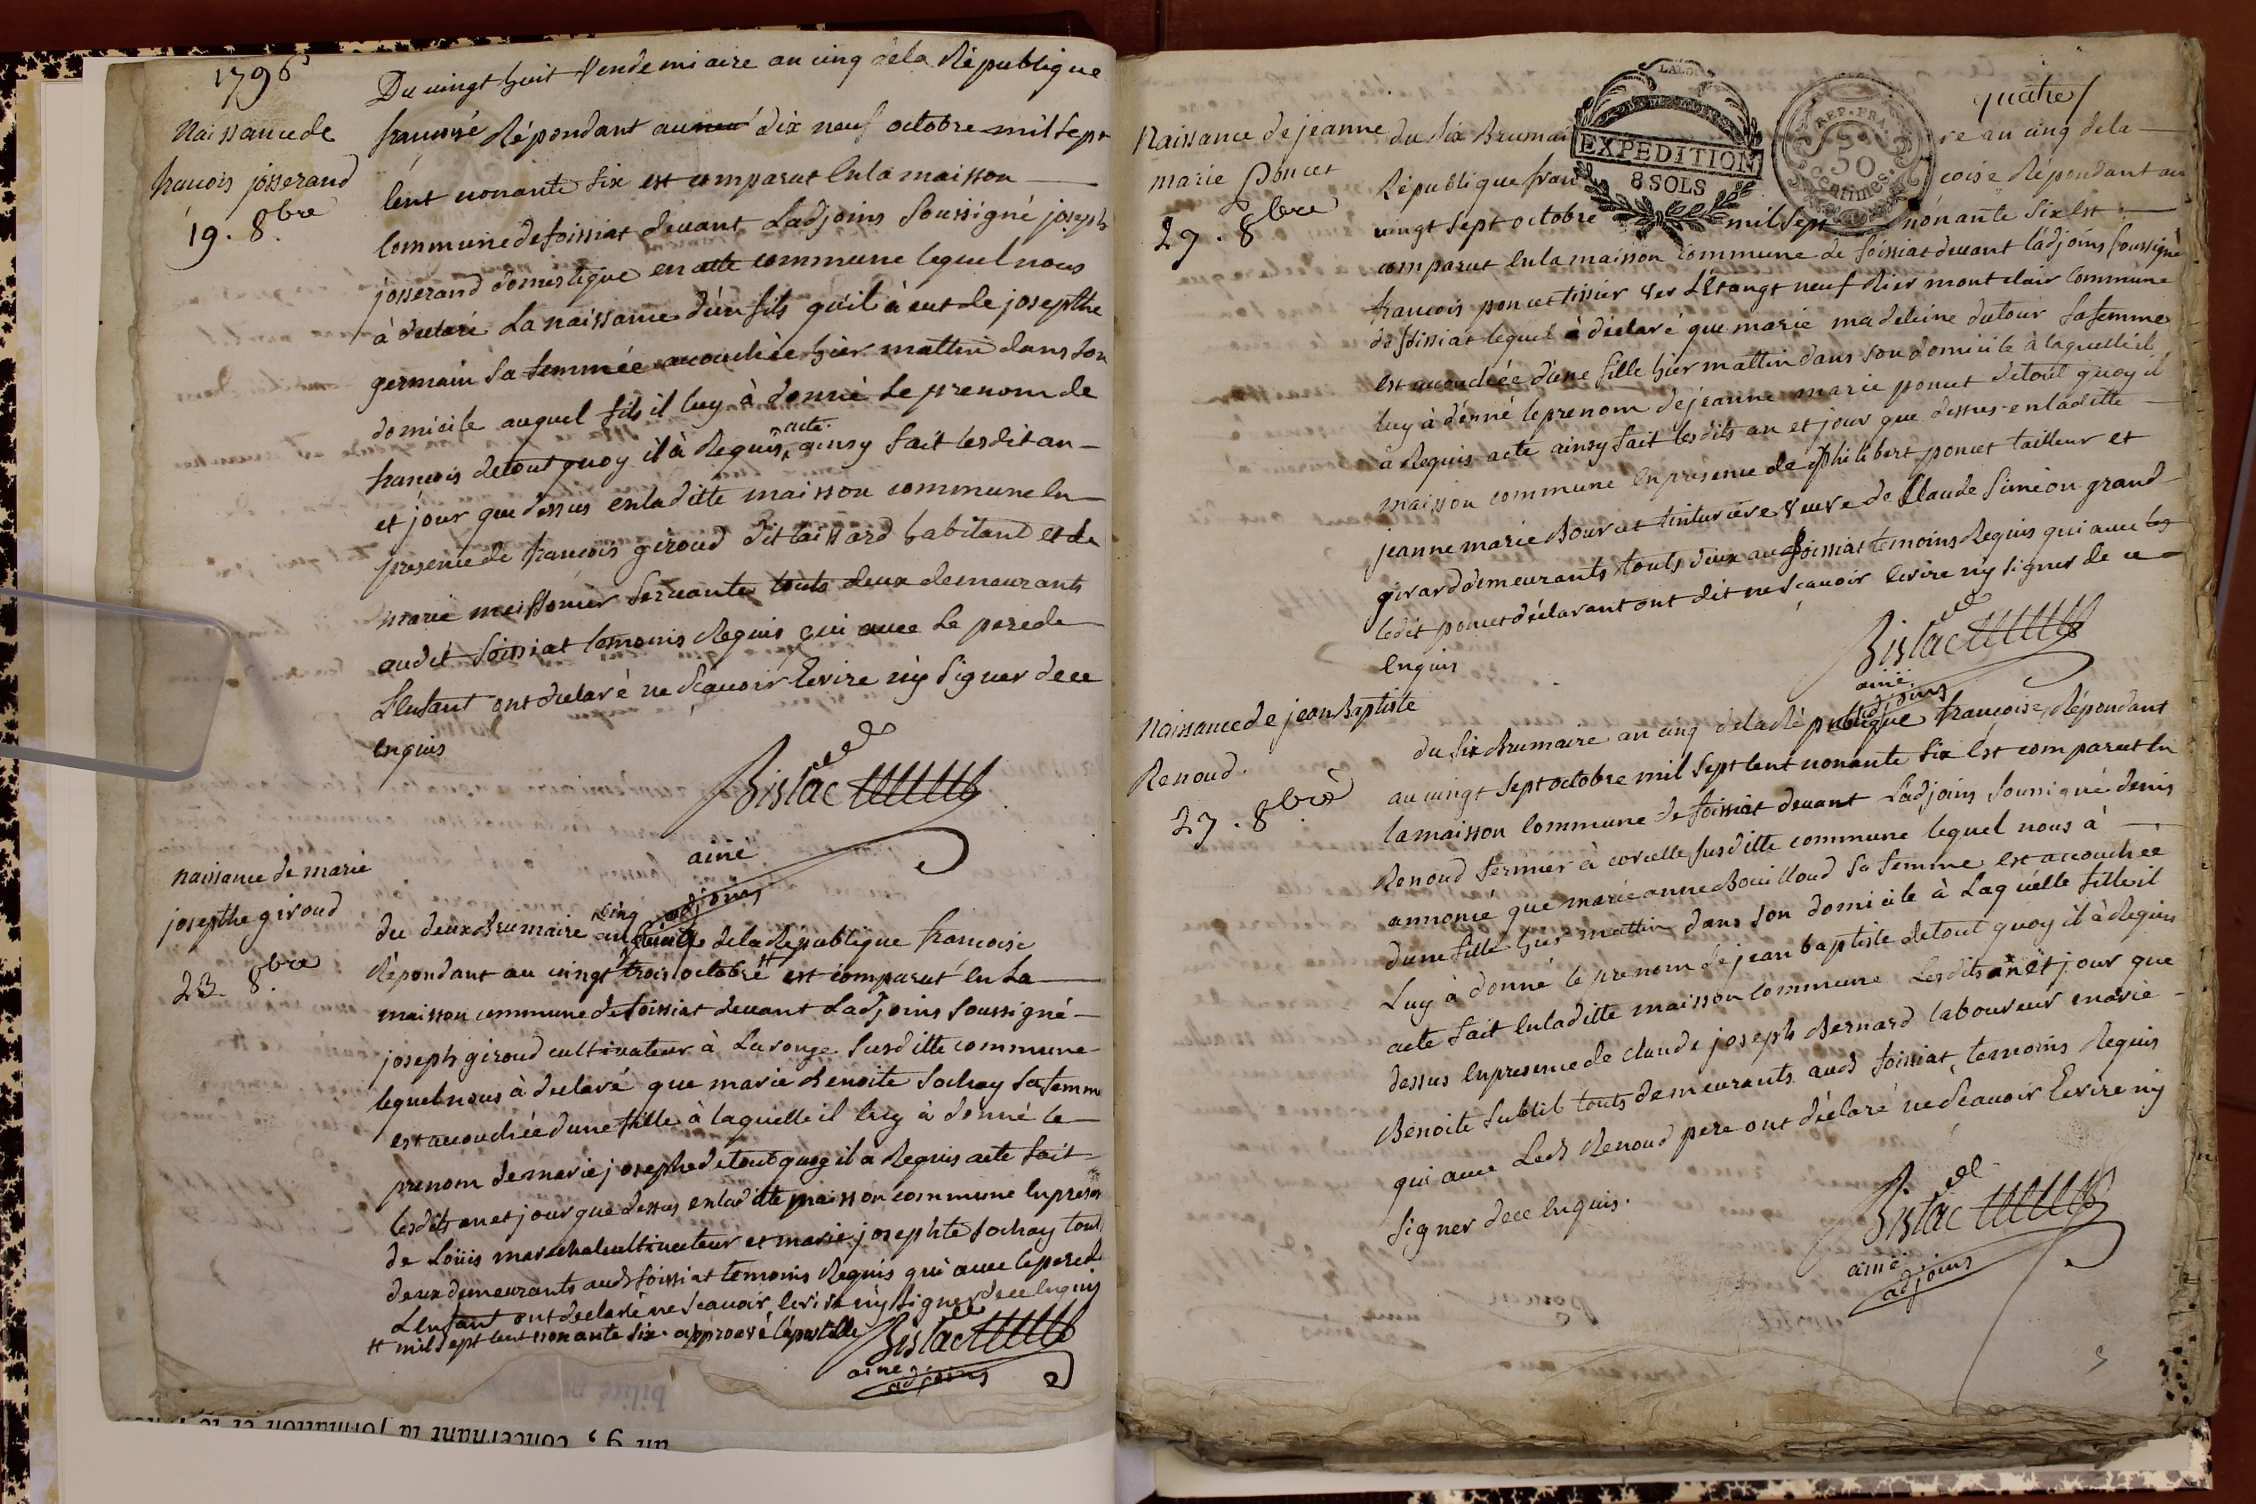 1796
Naissance de
francois josserand
19. 8bre
Du vingt huit Vendemiaire an cinq dela Republique
francoise Répondant au dix neuf octobre mil sept
Cent nonante six est comparut En la maisson
Commune de foissiat devant Ladjoins Soussigné joseph
josserand domestique en cette commune lequel nous
à declaré La naissance d'un fils qu'il à eut de josephte
germain sa femmée accouchée hier mattin dans son
domicile auquel fils il luy à donné Le prenom de
acte.
francois detout quoy il à Requis ainsy fait lesdit an
et jour que dessus enladitte maisson commune En
presence de francois giroud dit laissard habitant et de
marie meissonier servante touts deux demeurants
audit foissiat temoins Requis qui avec Le perede
L'Enfant ont declaré ne Scavoir Ecrire ny Signer dece
Enquis
Bislac
ainé
adjoins
naissance de marie
josepthe giroud
23. 8bre
cinq
du deux Brumaire an dela Republique francoise
Répondant au vingt trois octobre # est comparut En La
maisson commune de foissiat devant Ladjoins Soussigné
joseph giroud cultivateur à Laronge Susditte commune
lequel nous à declaré que marie Benoite Sochay sa femme
est accouchée d'une fille à laquelle il luy à donné le
prenom de marie josephe detout quoy il a Requis acte fait
lesdits an et jour que dessus enladitte maisson commune En presence
de Loüis marechal cultivateur et marie josephte Sochay tout
deux demeurants audt foissiat temoins Requis qui avec leperede
L'Enfant ont declaré ne scavoir Ecrire ny signer dece Enquis
# mil sept cent nonante six. approuvé l'apostille
Bislac
ainé
adjoins
quatre
LALOI
EXPEDITION
8 SOLS
REP. FRA.
50
centimes.
Naissance de jeanne
marie Poncet
27. 8bre
du six Brumaire an cinq dela
Republique francoise Répondant au
vingt sept octobre mil sept nonante six Est
comparut En la maisson Commune de foissiat devant l'adjoins soussigné
francois poncet tissier ver L'Etangt neuf Rier mont clair Commune
de foissiat lequel à declaré que marie madeleine dutour sa femme
est accouchée d'une fille hier mattin dans son domicile à laquelle il
luy à donné leprenom de jeanne marie poncet detout quoy il
a Requis acte ainsy fait lesdits an et jour que dessus enladitte
maisson commune En presence de philibert poncet tailleur et
jeanne marie Bourcet tinturiere veuve de Claude Simeon grand
girard demeurants touts deux aud foissiat temoins Requis qui avec
ledit poncet déclarant ont dit ne Scavoir Ecrire ny signer de ce
Enquis
Bislac
ainé
adjoins
Naissance de jean Baptiste
Renoud.
27. 8bre
du six Brumaire an cinq dela Republique francoise Répondant
au vingt sept octobre mil sept Cent nonante six Est comparut En
la maisson Commune de foissiat devant L'adjoins soussigné denis
Renoud fermier à corcelle susditte commune lequel nous à
annoncé que marie anne Bouilloud sa femme est accouchée
d'une fille hier mattin dans son domicile à Laquelle fille il
Luy à donné le prenom de jean baptiste detout quoy il à Requis
acte fait Enladitte maisson Commune Lesdits an et jour que
dessus Enpresence de claude joseph Bernard laboureur marie
Benoite Sublit touts demeurants aud foissiat, temoins Requis
qui avec Led Renoud pere ont déclaré ne Scavoir Ecrire ny
Signer dece Enquis.
Bislac
ainé
adjoins